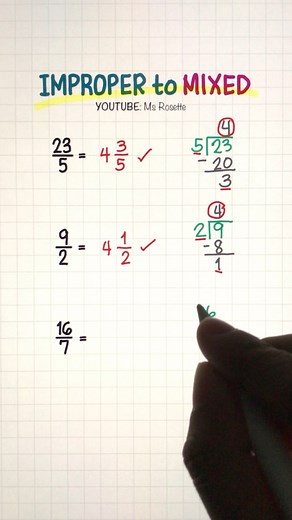 IMPROPER to MIXED
YOUTUBE: Ms Rosette
23/5 = 4 3/5 ✓
4
5 23
- 20
3
9/2 = 4 1/2 ✓
4
2 9
- 8
1
16/7 =
6